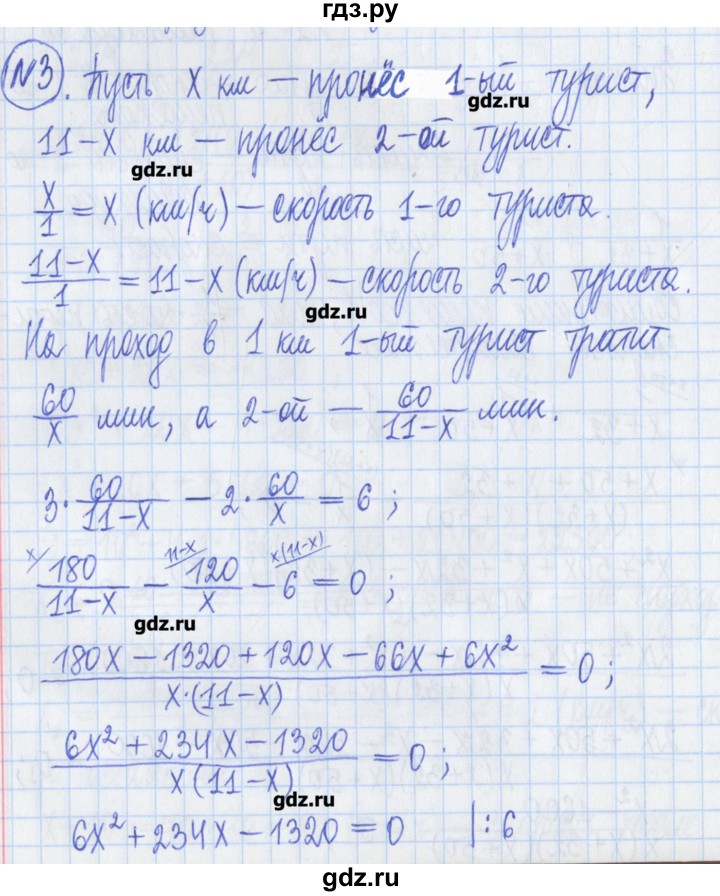 гдз.ру
№3. Пусть x км – пронёс 1-ый турист,
gdz.ru
11-x км – пронёс 2-ой турист.
gdz.ru
x/1 = x (км/ч) – скорость 1-го туриста.
(11-x)/1 = 11-x (км/ч) – скорость 2-го туриста.
gdz.ru
На проход в 1 км 1-ый турист тратит
60/x мин, а 2-ой – 60/(11-x) мин.
gdz.ru
3·60/(11-x) – 2·60/x = 6;
x/ 11-x/ x(11-x)/
180/(11-x) – 120/x – 6 = 0;
gdz.ru
(180x – 1320 + 120x – 66x + 6x²)/(x·(11-x)) = 0;
(6x² + 234x – 1320)/(x(11-x)) = 0;
gdz.ru
6x² + 234x – 1320 = 0 |:6
гдз.рф